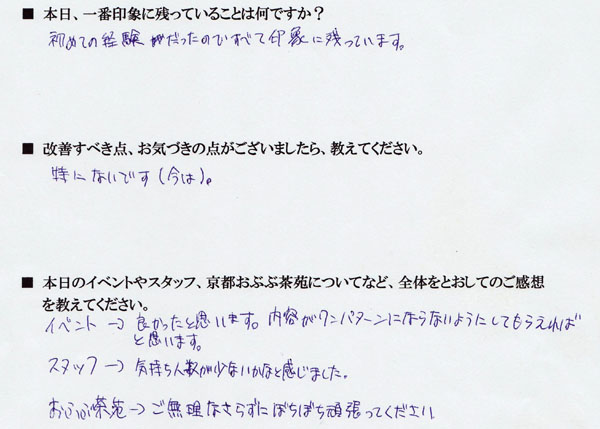 ■ 本日、一番印象に残っていることは何ですか？
初めての経験だったのですべて印象に残っています。
■ 改善すべき点、お気づきの点がございましたら、教えてください。
特にないです(今は)。
■ 本日のイベントやスタッフ、京都おぶぶ茶苑についてなど、全体をとおしてのご感想
を教えてください。
イベント→良かったと思います。内容がワンパターンにならないようにしてもらえれば
と思います。
スタッフ→気持ち人数が少ないかなと感じました。
おぶぶ茶苑→ご無理なさらずにぼちぼち頑張ってください